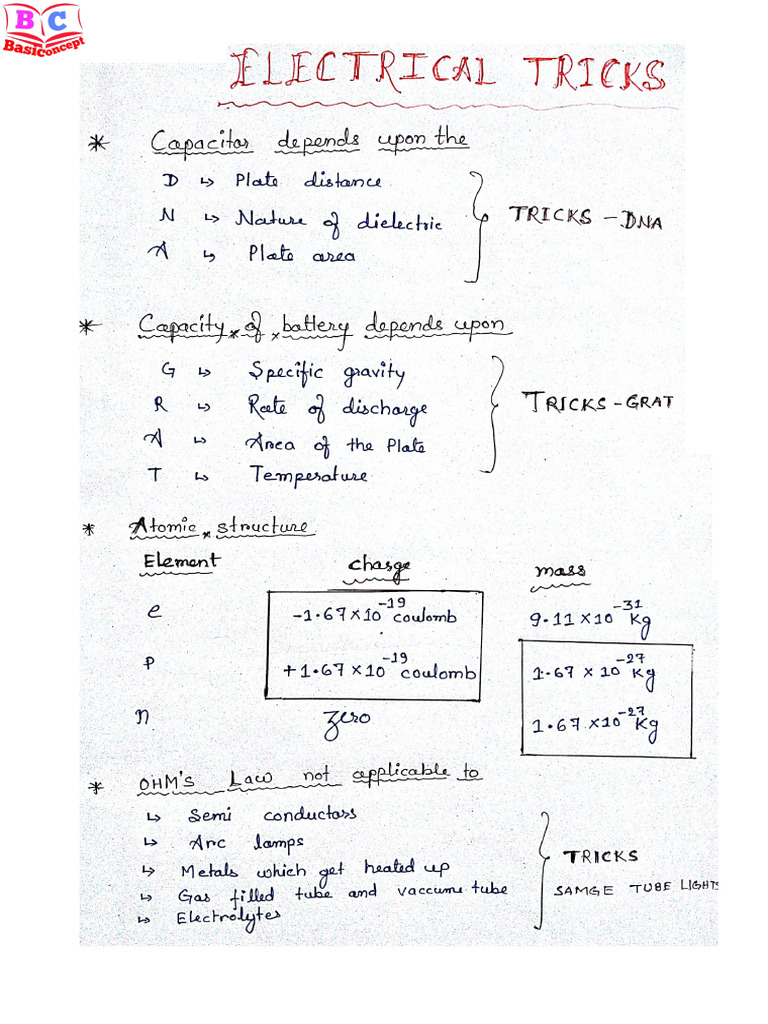 BC
BasicConcept
ELECTRICAL TRICKS
* Capacitor depends upon the
D ↳ Plate distance
N ↳ Nature of dielectric
A ↳ Plate area
TRICKS - DNA
* Capacity of battery depends upon
G ↳ Specific gravity
R ↳ Rate of discharge
A ↳ Area of the Plate
T ↳ Temperature
TRICKS - GRAT
* Atomic structure
Element charge mass
e -1.67 × 10⁻¹⁹ coulomb 9.11 × 10⁻³¹ Kg
P +1.67 × 10⁻¹⁹ coulomb 1.67 × 10⁻²⁷ Kg
n zero 1.67 × 10⁻²⁷ Kg
* OHM'S Law not applicable to
↳ Semi conductors
↳ Arc lamps
↳ Metals which get heated up
↳ Gas filled tube and vaccume tube
↳ Electrolytes
TRICKS
SAMGE TUBE LIGHTS